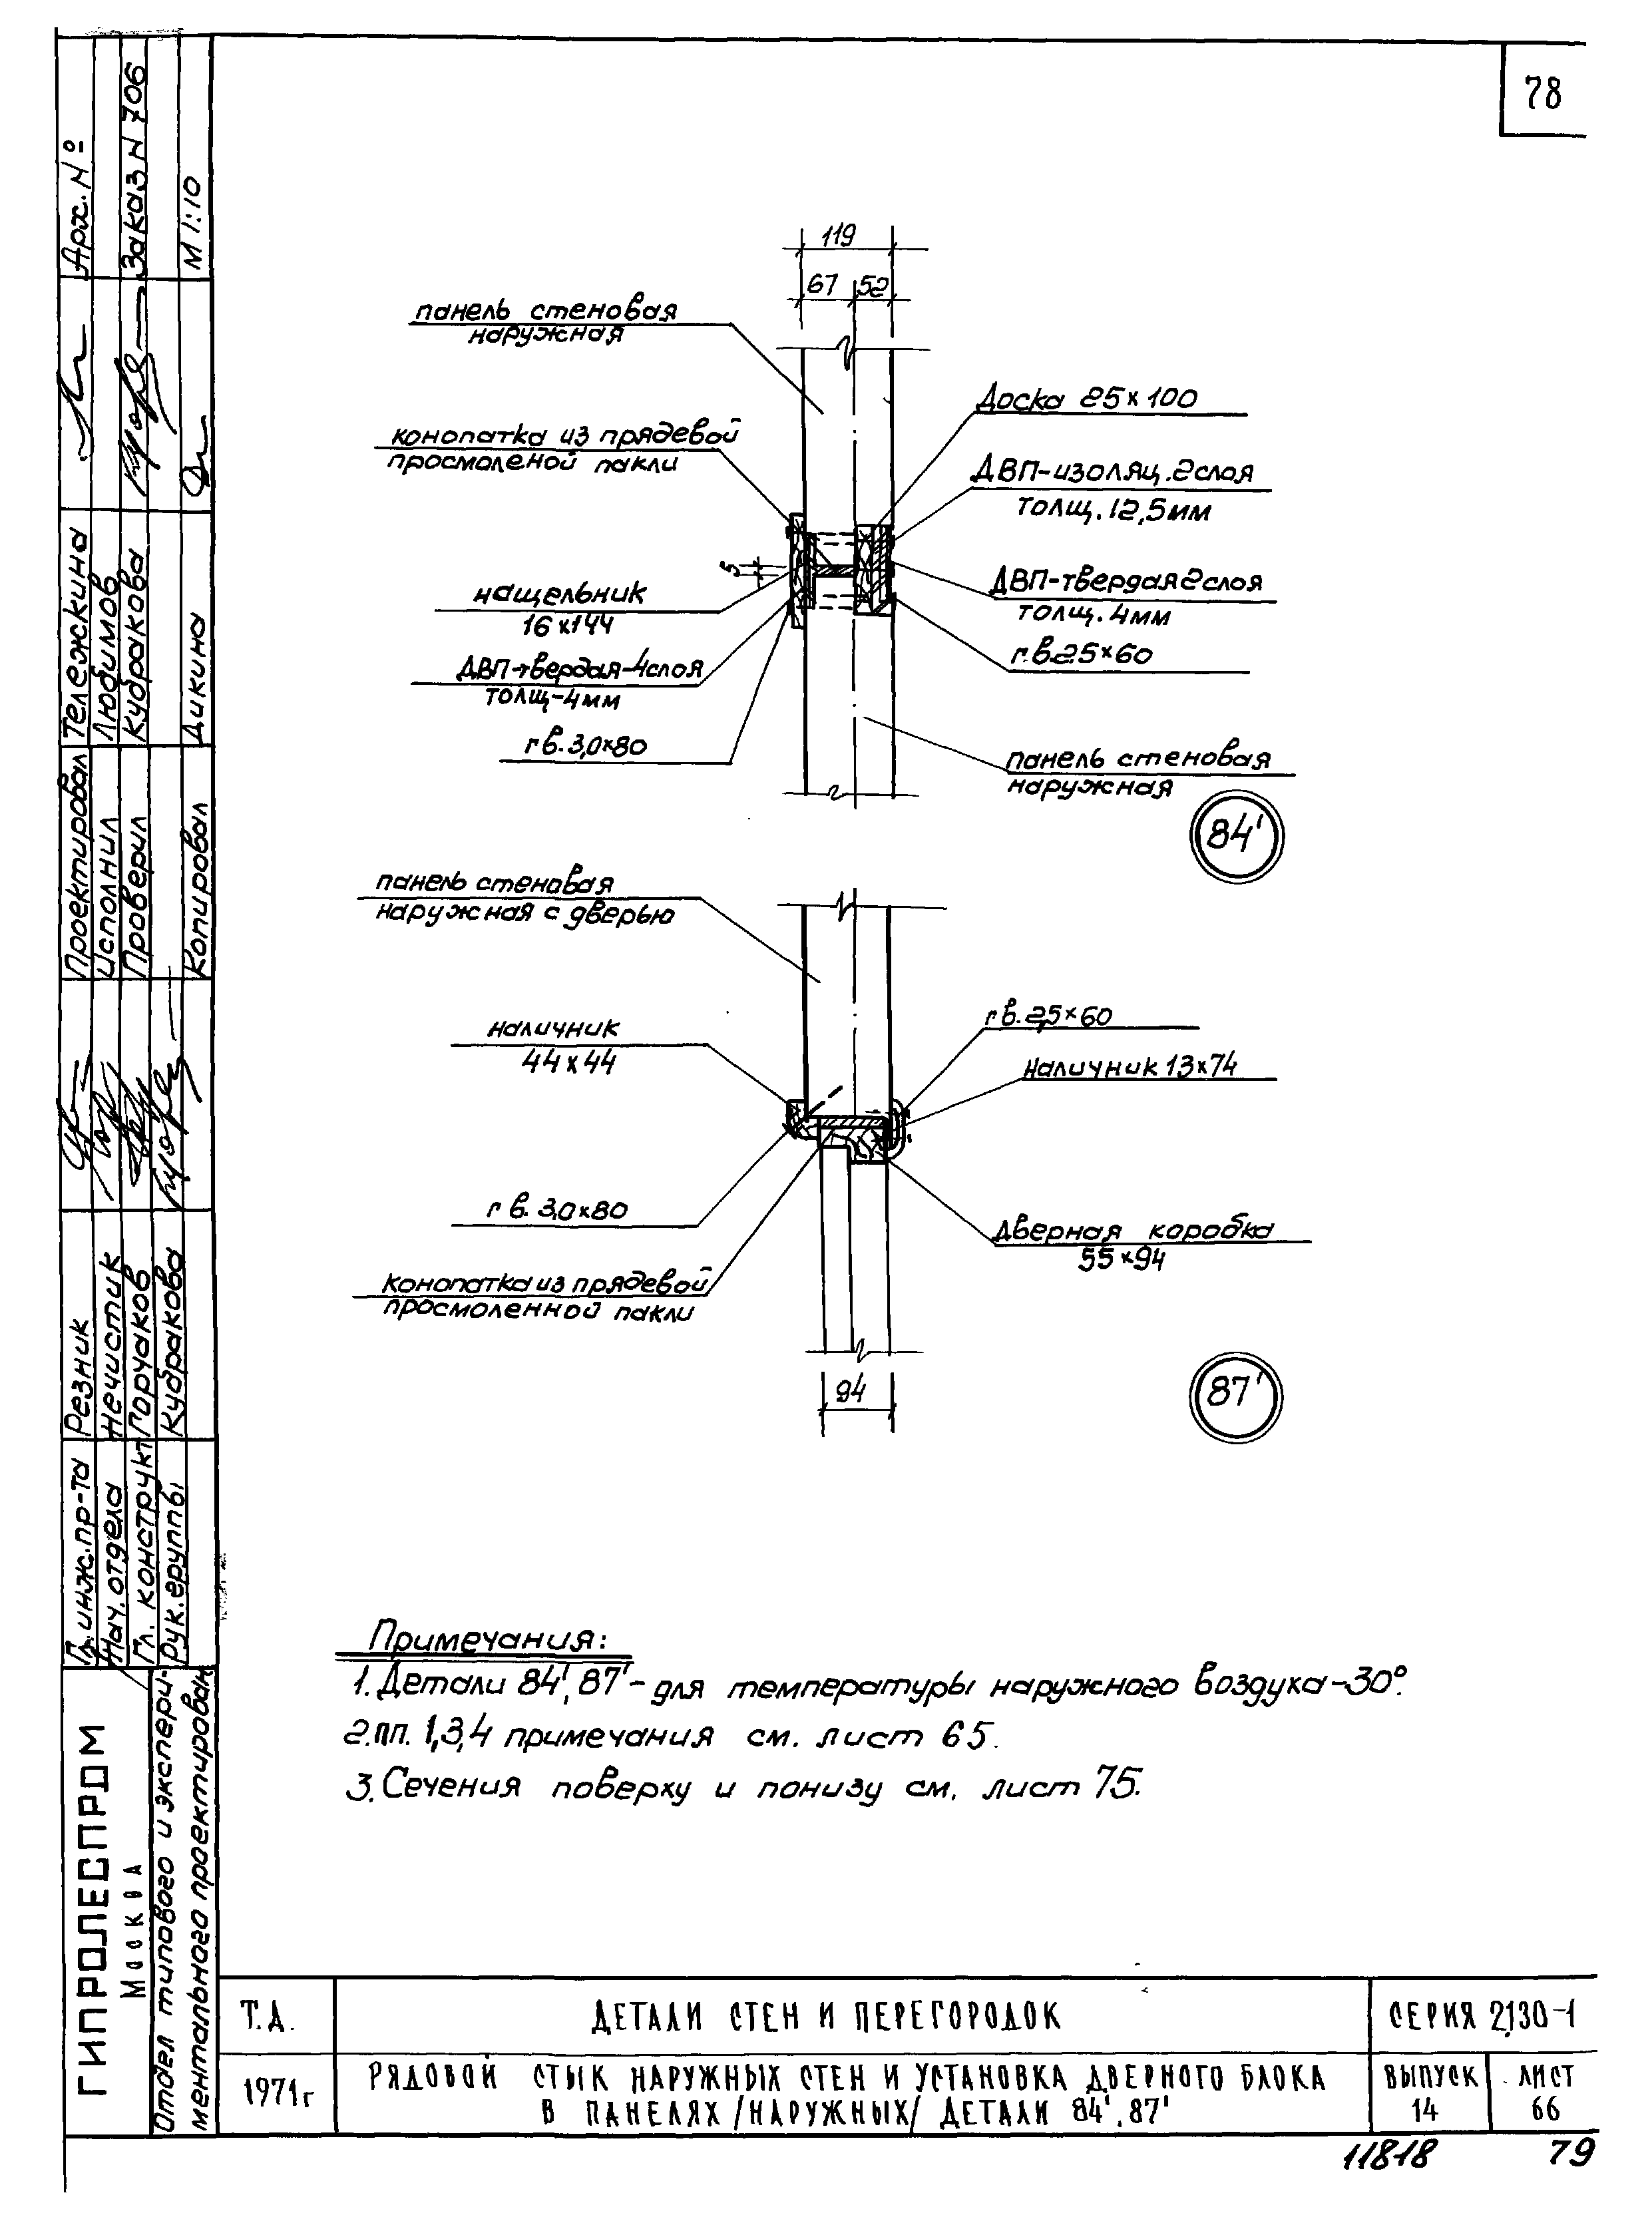 78
119
67
52
панель стеновая
наружная
Доска 25×100
конопатка из прядевой
просмоленой пакли
ДВП-изоляц. 2 слоя
толщ. 12,5 мм
5
нащельник
16×144
ДВП-твердая 2 слоя
толщ. 4 мм
гв. 2.5×60
ДВП-твердая-4 слоя
толщ-4 мм
гв. 3,0×80
панель стеновая
наружная
84'
панель стеновая
наружная с дверью
гв. 2,5×60
наличник
44×44
наличник 13×74
гв. 3,0×80
дверная коробка
55×94
конопатка из прядевой
просмоленной пакли
94
87'
Примечания:
1. Детали 84', 87' - для температуры наружного воздуха -30°.
2. пп. 1,3,4 примечания см. лист 65.
3. Сечения поверху и понизу см. лист 75.
Арх. №
Заказ N 706
М 1:10
Проектировал Тележкина
Исполнил Любимов
Проверил Кудракова
Копировал Дикина
Гл. инж. пр-та Резник
Нач. отдела Нечистик
Гл. конструкт Горчаков
Рук. группы Кудракова
ГИПРОЛЕСПРОМ
Москва
Отдел типового и экспери-
ментального проектирован
Т.Д.
ДЕТАЛИ СТЕН И ПЕРЕГОРОДОК
СЕРИЯ 2.130-1
1971г
РЯДОВОЙ СТЫК НАРУЖНЫХ СТЕН И УСТАНОВКА ДВЕРНОГО БЛОКА
В ПАНЕЛЯХ /НАРУЖНЫХ/ ДЕТАЛИ 84', 87'
ВЫПУСК
14
ЛИСТ
66
11818
79